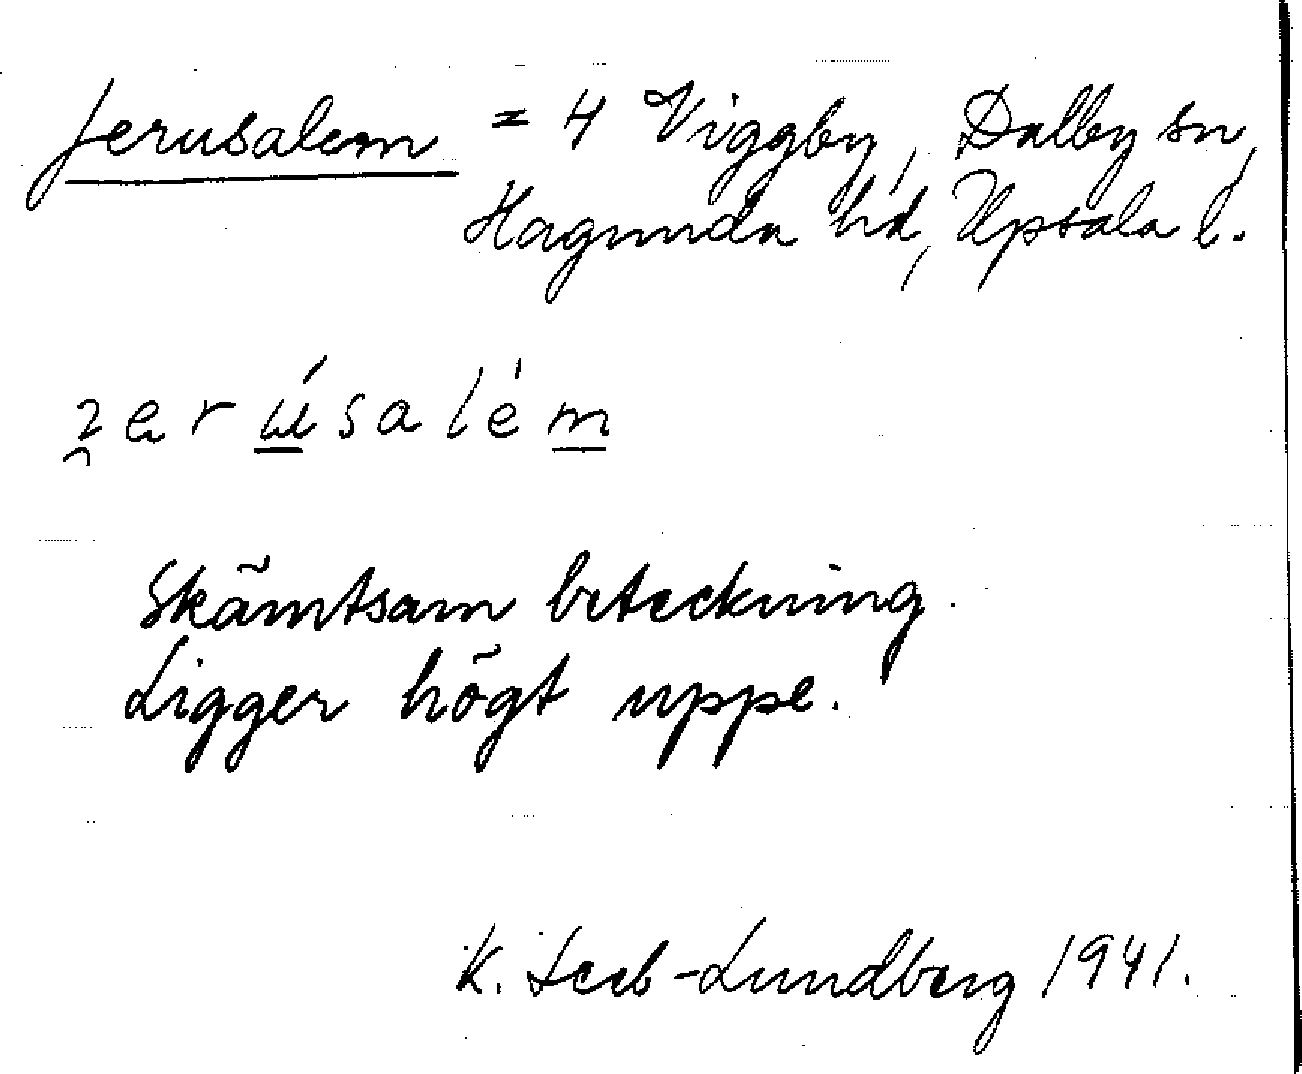 Jerusalem = 4 Viggby, Dalby sn,
Hagunda hd, Upsala l.
ʒerúsalém
Skämtsam beteckning.
Ligger högt uppe.
K. Leeb-Lundberg 1941.